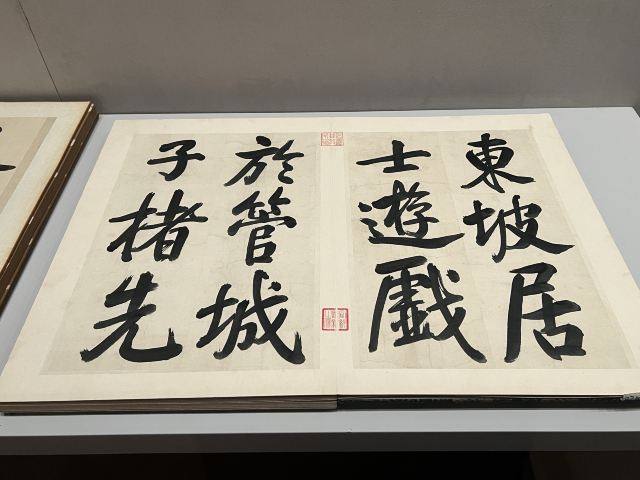 東坡居
士遊戲
於管城
子楮先